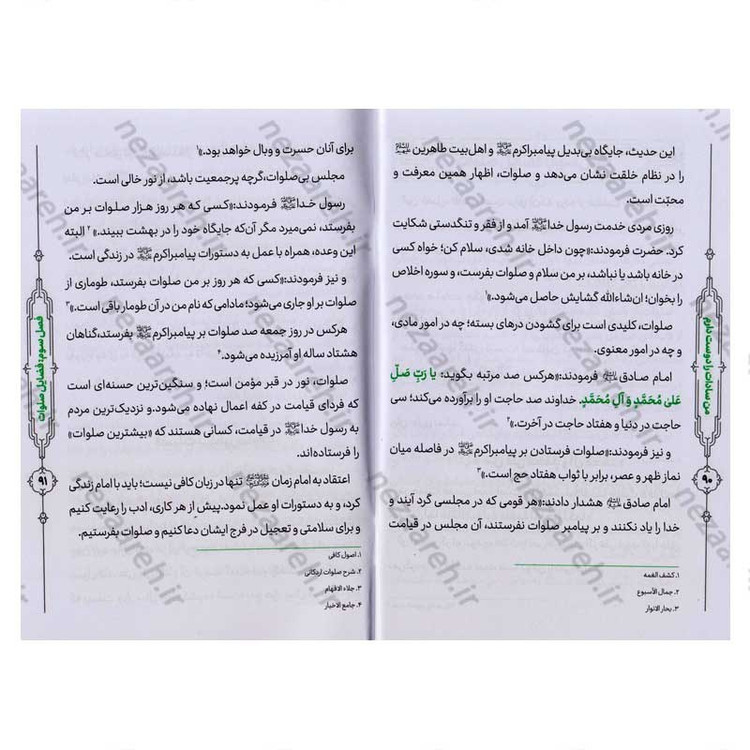 این حدیث، جایگاه بی‌بدیل پیامبراکرم ﷺ و اهل‌بیت طاهرین
را در نظام خلقت نشان می‌دهد و صلوات، اظهار همین معرفت و
محبّت است.
روزی مردی خدمت رسول خدا ﷺ آمد و از فقر و تنگدستی شکایت
کرد. حضرت فرمودند:«چون داخل خانه شدی، سلام کن؛ خواه کسی
در خانه باشد یا نباشد، بر من سلام و صلوات بفرست، و سوره اخلاص
را بخوان؛ ان‌شاءالله گشایش حاصل می‌شود.»۱
صلوات، کلیدی است برای گشودن درهای بسته؛ چه در امور مادی،
و چه در امور معنوی.
امام صادق فرمودند:«هرکس صد مرتبه بگوید: یا رَبِّ صَلِّ
عَلیٰ مُحَمَّدٍ وَ آلِ مُحَمَّدٍ. خداوند صد حاجت او را برآورده می‌کند؛ سی
حاجت در دنیا و هفتاد حاجت در آخرت.»۲
و نیز فرمودند:«صلوات فرستادن بر پیامبراکرم ﷺ در فاصله میان
نماز ظهر و عصر، برابر با ثواب هفتاد حج است.»۳
امام صادق هشدار دادند:«هر قومی که در مجلسی گرد آیند و
خدا را یاد نکنند و بر پیامبر صلوات نفرستند، آن مجلس در قیامت
۱. کشف الغمه
۲. جمال الأسبوع
۳. بحار الانوار
من سادات را دوست دارم
۹۰
برای آنان حسرت و وبال خواهد بود.»۱
مجلس بی‌صلوات،گرچه پرجمعیت باشد، از نور خالی است.
رسول خدا ﷺ فرمودند:«کسی که هر روز هزار صلوات بر من
بفرستد، نمی‌میرد مگر آن‌که جایگاه خود را در بهشت ببیند.»۲ البته
این وعده، همراه با عمل به دستورات پیامبراکرم ﷺ در زندگی است.
و نیز فرمودند:«کسی که هر روز بر من صلوات بفرستد، طوماری از
صلوات بر او جاری می‌شود؛ مادامی که نام من در آن طومار باقی است.»۳
هرکس در روز جمعه صد صلوات بر پیامبراکرم ﷺ بفرستد،گناهان
هشتاد ساله او آمرزیده می‌شود.۴
صلوات، نور در قبر مؤمن است؛ و سنگین‌ترین حسنه‌ای است
که فردای قیامت در کفه اعمال نهاده می‌شود.و نزدیک‌ترین مردم
به رسول خدا ﷺ در قیامت، کسانی هستند که «بیشترین صلوات»
را فرستاده‌اند.
اعتقاد به امام زمان تنها در زبان کافی نیست؛ باید با امام زندگی
کرد، و به دستورات او عمل نمود.پیش از هر کاری، ادب را رعایت کنیم
و برای سلامتی و تعجیل در فرج ایشان دعا کنیم و صلوات بفرستیم.
۱. اصول کافی
۲. شرح صلوات اردکانی
۳. جلاء الافهام
۴. جامع الاخبار
فصل سوم: فضایل صلوات
۹۱
nezaareh.ir